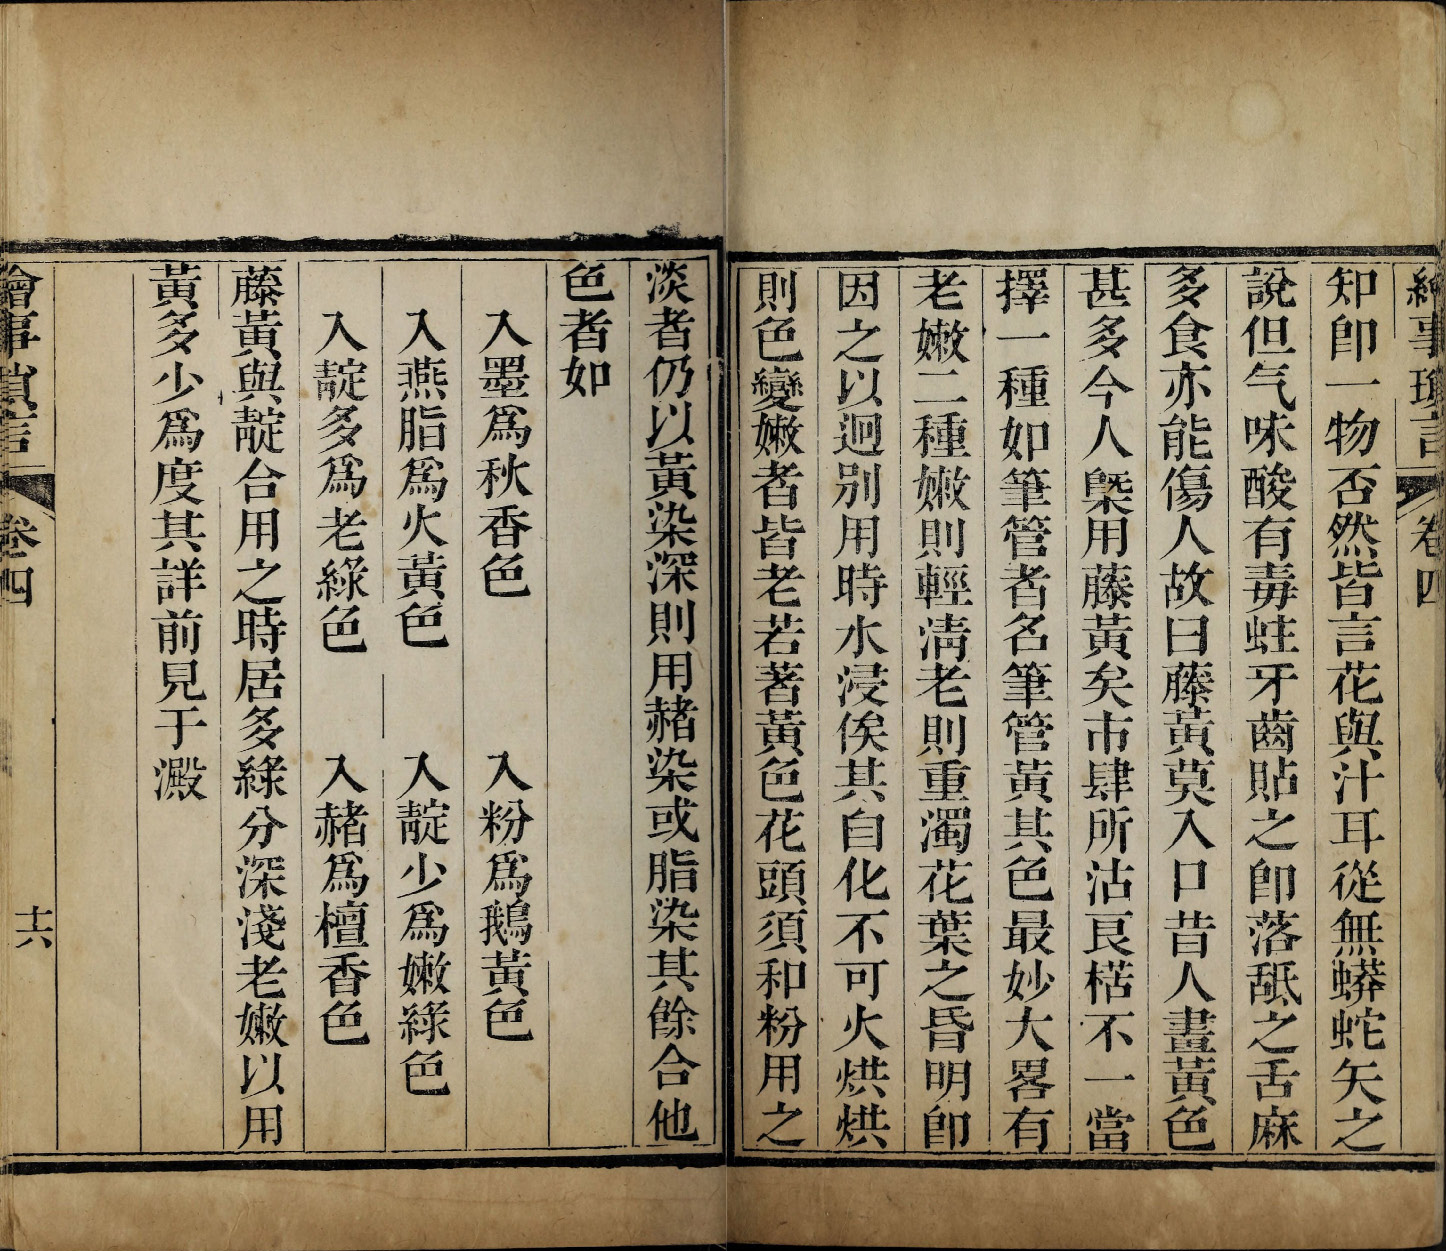 繪事瑣言 卷四
知卽一物否然皆言花與汁耳從無蟒蛇矢之
說但气味酸有毒蛀牙齒貼之卽落舐之舌麻
多食亦能傷人故曰藤黃莫入口昔人畫黃色
甚多今人槩用藤黃矣市肆所沽良楛不一當
擇一種如筆管者名筆管黃其色最妙大畧有
老嫩二種嫩則輕淸老則重濁花葉之昏明卽
因之以迥別用時水浸俟其自化不可火烘烘
則色變嫩者皆老若著黃色花頭須和粉用之
淡者仍以黃染深則用赭染或脂染其餘合他
色者如
入墨爲秋香色 入粉爲鵝黃色
入燕脂爲火黃色 入靛少爲嫩綠色
入靛多爲老綠色 入赭爲檀香色
藤黃與靛合用之時居多綠分深淺老嫩以用
黃多少爲度其詳前見于澱
繪事瑣言 卷四 十六